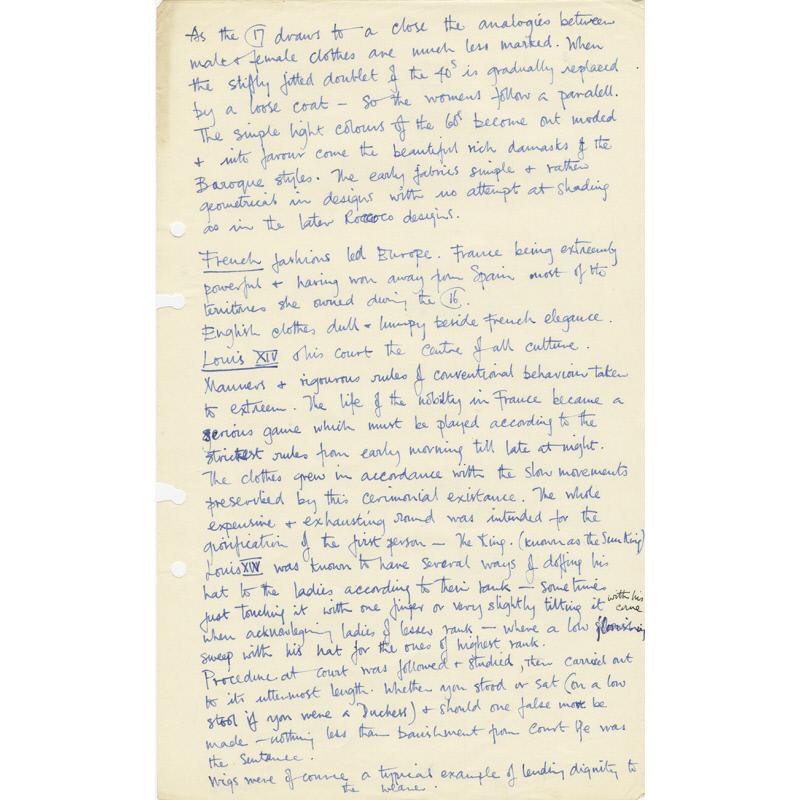 As the 17 draws to a close the analogies between
male + female clothes are much less marked. When
the stifly fitted doublet of the 40s is gradually replaced
by a loose coat – so the womens follow a paralell.
The simple light colours of the 60s become out moded
+ into favour come the beautiful rich damasks of the
Baroque styles. The early fabrics simple + rather
geometrical in designs with no attempt at shading
as in the later Rococo designs.
French fashions led Europe. France being extremely
powerful + having won away from Spain most of the
territories she owned during the 16.
English clothes dull + lumpy beside French elegance.
Louis XIV & his court the centre of all culture.
Manners + rigourous rules of conventional behaviour taken
to extreem. The life of the nobility in France became a
serious game which must be played according to the
strictest rules from early morning till late at night.
The clothes grew in accordance with the slow movements
prescribed by this cerimonial existance. The whole
expensive + exhausting round was intended for the
glorification of the first person – The King. (known as the Sun King)
Louis XIV was known to have several ways of doffing his
hat to the ladies according to their rank – sometimes
just touching it with one finger or very slightly tilting it with his cane
when acknowleging ladies of lesser rank – where a low
sweep with his hat for the ones of highest rank.
Procedure at court was followed + studied, then carried out
to its uttermost length. Whether you stood or sat (on a low
stool if you were a Duchess) + should one false move be
made – nothing less than banishment from court life was
the sentance.
Wigs were of course a typical example of lending dignity to
the wearer.